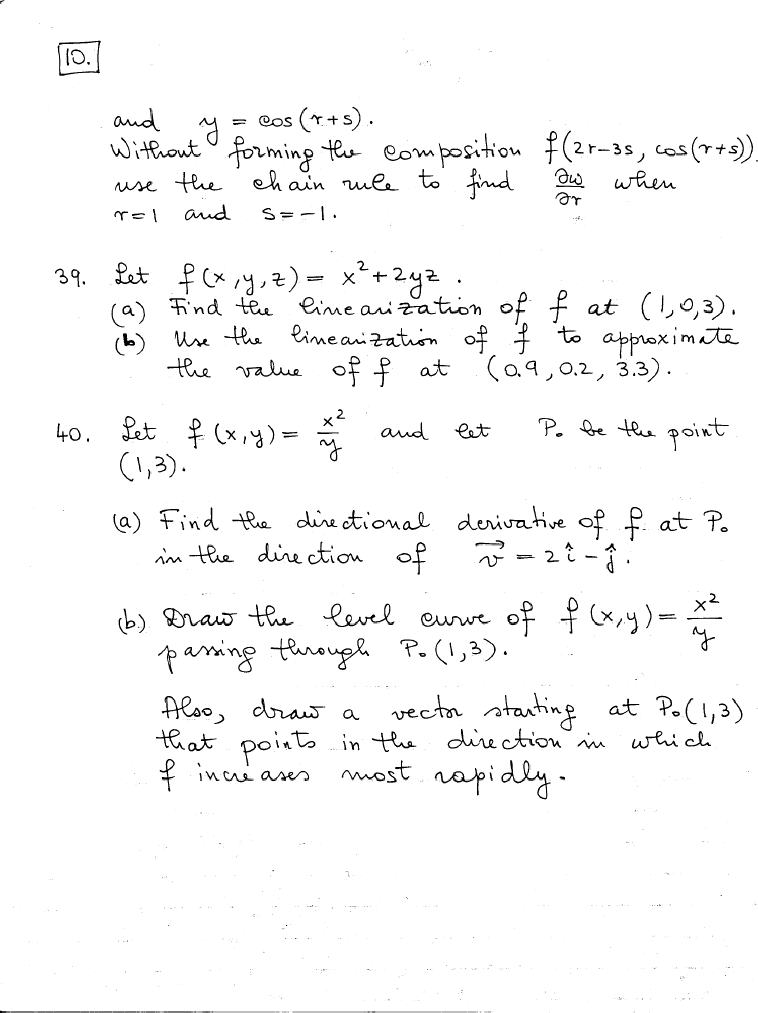 10.
and y = cos(r+s).
Without forming the composition f(2r-3s, cos(r+s))
use the chain rule to find ∂w/∂r when
r=1 and s=-1.
39. Let f(x,y,z) = x²+2yz.
(a) Find the linearization of f at (1,0,3).
(b) Use the linearization of f to approximate
the value of f at (0.9, 0.2, 3.3).
40. Let f(x,y) = x²/y and let P₀ be the point
(1,3).
(a) Find the directional derivative of f at P₀
in the direction of v⃗ = 2î - ĵ.
(b) Draw the level curve of f(x,y) = x²/y
passing through P₀(1,3).
Also, draw a vector starting at P₀(1,3)
that points in the direction in which
f increases most rapidly.